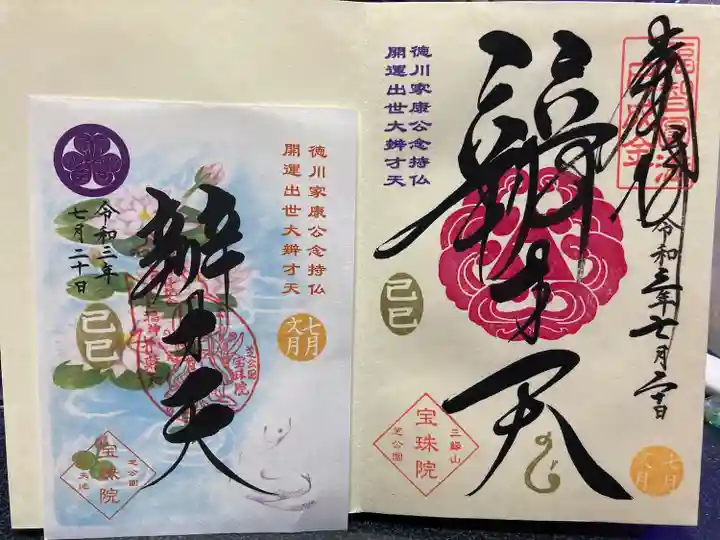 奉拝
令和三年七月二十日
徳川家康公念持仏
開運出世大辨才天
辨才天
己巳
三縁山
宝珠院
芝公園
七月
文月
徳川家康公念持仏
開運出世大辨才天
辨才天
令和三年
七月二十日
己巳
七月
文月
芝公園
宝珠院
芝公園
宝珠院